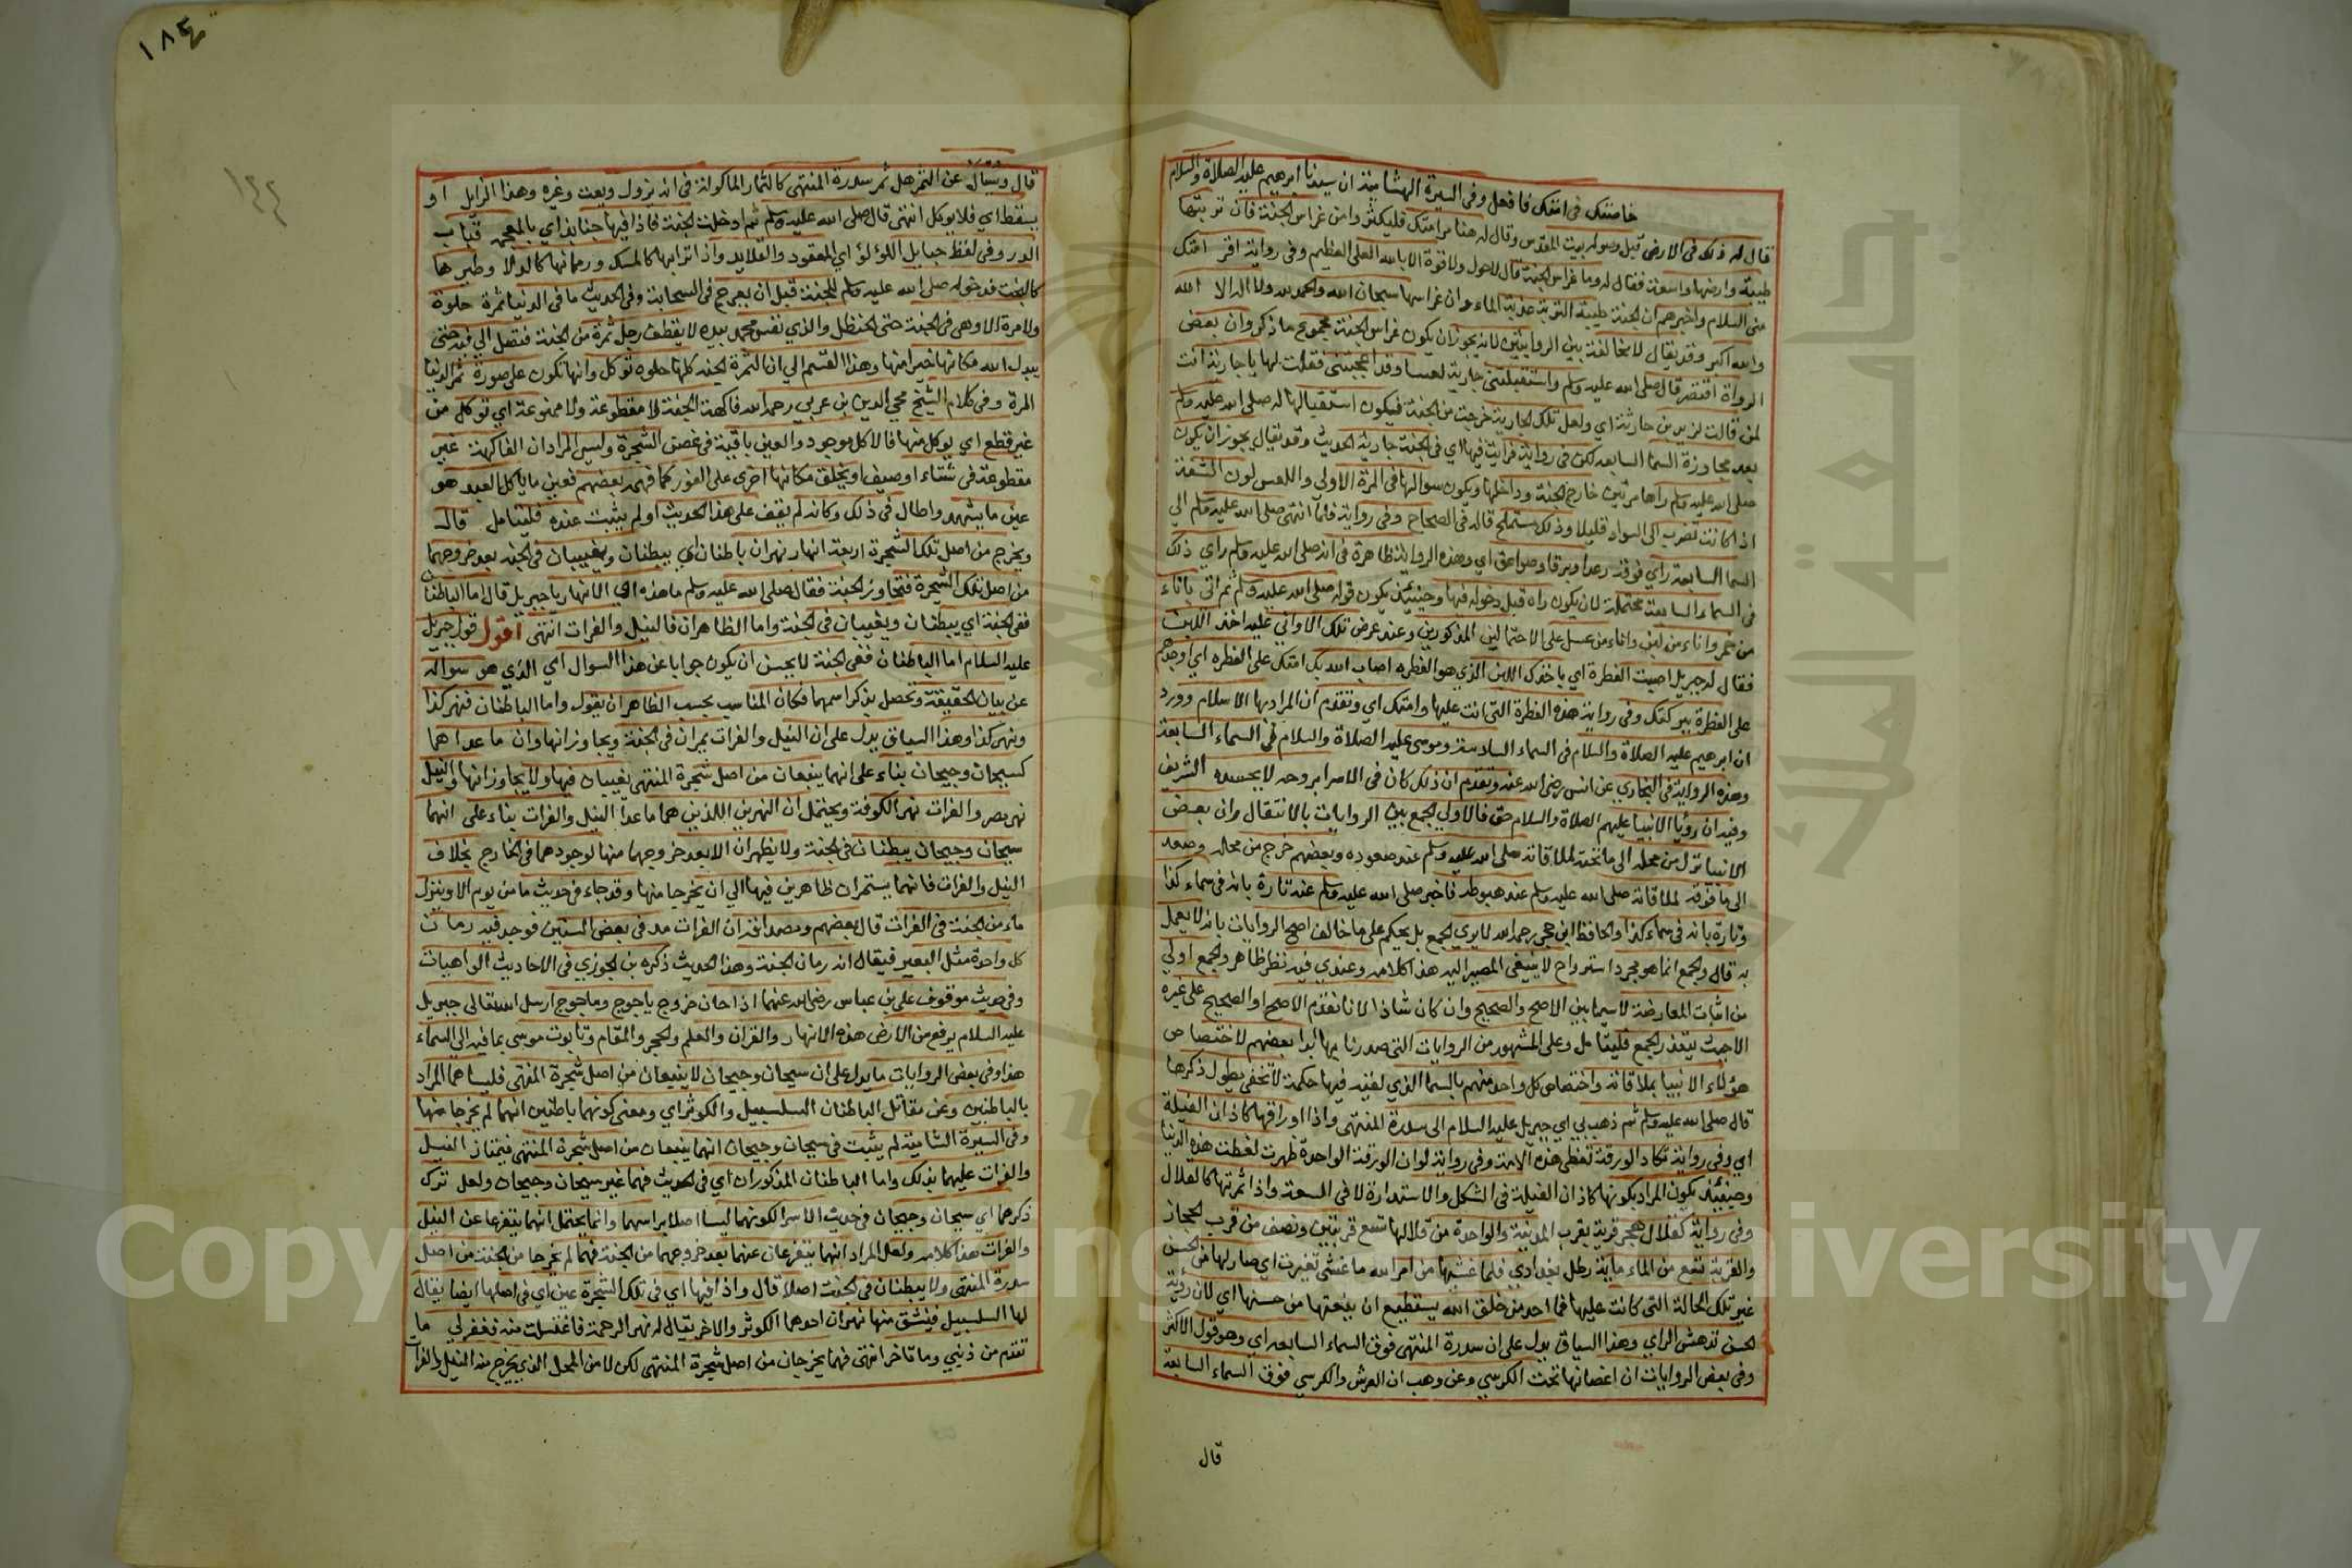 خاصتك فى امتك فافعل وفى السيرة الهشامية ان سيدنا ابرهيم عليه الصلاة والسلام
قال له ذلك فى الارض قبل وصوله بيت المقدس وقال له هنا مر امتك فليكثروا من غراس الجنة فان تربتها
طيبة وارضها واسعة فقال له وما غراس الجنة قال لا حول ولا قوة الا بالله العلى العظيم وفى رواية اقر امتك
منى السلام واخبرهم ان الجنة طيبة التربة عذبة الماء وان غراسها سبحان الله والحمد لله ولا اله الا الله
والله اكبر وقد يقال لا مخالفة بين الروايتين لانه يجوز ان يكون غراس الجنة مجموع ما ذكر وان بعض
الرواة اقتصر قال صلى الله عليه وسلم واستقبلتنى جارية لعسا وقد اعجبتنى فقلت لها يا جارية انت
لمن قالت لزيد بن حارثة اى ولعل تلك الجارية خرجت من الجنة فيكون استقبالها له صلى الله عليه وسلم
بعد مجاوزة السما السابعه لكن فى رواية فرايت فيها اى فى الجنة جارية الحديث وقد يقال يجوز ان يكون
صلى الله عليه وسلم راها مرتين خارج الجنة وداخلها ويكون سوالها فى المرة الاولى واللعس لون الشفة
اذا كانت تضرب الى السواد قليلا وذلك مستملح قاله فى الصحاح وفى رواية فلما انتهى صلى الله عليه وسلم الى
السما السابعة راى فوقه رعدا وبرقا وصواعق اى وهذه الرواية ظاهرة فى انه صلى الله عليه وسلم راى ذلك
فى السماء السابعة محتملة لان يكون راه قبل دخوله فيها وحينئذ يكون قوله صلى الله عليه وسلم ثم اتى باناء
من خمر واناء من لبن واناء من عسل على الاحتمالين المذكورين وعند عرض تلك الاوانى عليه اخذ اللبن
فقال له جبريل اصبت الفطرة اى باخذك اللبن الذى هو الفطره اصاب الله بك امتك على الفطره اى اوجدهم
على الفطرة ببركتك وفى رواية هذه الفطرة التى انت عليها وامتك اى وتقدم ان المراد بها الاسلام وورد
ان ابرهيم عليه الصلاة والسلام فى السماء السادسة وموسى عليه الصلاة والسلام فى السماء السابعة
وهذه الرواية فى البخارى عن انس رضى الله عنه وتقدم ان ذلك كان فى الاسرا بروحه لا بجسده الشريف
وفيه ان رؤيا الانبيا عليهم الصلاة والسلام حق فالاولى الجمع بين الروايات بالانتقال وان بعض
الانبيا نزل من محله الى ما تحته لملاقاته صلى الله عليه وسلم عند صعوده وبعضهم خرج من محله وصعد
الى ما فوقه لملاقاته صلى الله عليه وسلم عند هبوطه فاخبر صلى الله عليه وسلم عنه تارة بانه فى سماء كذا
وتارة بانه فى سماء كذا والحافظ ابن حجر رحمه الله لا يرى الجمع بل يحكم على ما خالف اصح الروايات بانه لا يعمل
به قال والجمع انما هو مجرد استرواح لا ينبغى المصير اليه هذا كلامه وعندى فيه نظر ظاهر والجمع اولى
من اثبات المعارضة لاسيما بين الاصح والصحيح وان كان شاذا لانا نقدم الاصح او الصحيح على غيره
الا حيث يتعذر الجمع فليتامل وعلى المشهور من الروايات التى صدرنا بها ابدا بعضهم لاختصاص
هؤلاء الانبيا بملاقاته واختصاص كل واحد منهم بالسما الذى لقيه فيها حكمة لا تخفى يطول ذكرها
قال صلى الله عليه وسلم ثم ذهب بى اى جبريل عليه السلام الى سدرة المنتهى واذا اوراقها كاذان الفيلة
اى وفى رواية تكاد الورقة تغطى هذه الامة وفى رواية لو ان الورقة الواحدة ظهرت لغطت هذه الدنيا
وحينئذ يكون المراد بكونها كاذان الفيلة فى الشكل والاستدارة لا فى السعة واذا ثمرتها كالقلال
وفى رواية كقلال هجر قرية بقرب المدينة والواحدة من قلالها تسع قربتين ونصف من قرب الحجاز
والقربة تسع من الماء ماية رطل بغدادى فلما غشيها من امر الله ما غشى تغيرت اى صار لها من الحسن
غير تلك الحالة التى كانت عليها فما احد من خلق الله يستطيع ان ينعتها من حسنها اى لان رؤية
الحسن تدهش الراى وهذا السياق يدل على ان سدرة المنتهى فوق السماء السابعه اى وهو قول الاكثر
وفى بعض الروايات ان اغصانها تحت الكرسى وعن وهب ان العرش والكرسى فوق السماء السابعة
قال
١٨٤
١٤٤
قال وسئل عن الثمر هل ثمر سدرة المنتهى كالثمار الماكولة فى انه يزول ويعت وغيره وهذا الزايل او
يسقط اى فلا يوكل انتهى قال صلى الله عليه وسلم ثم ادخلت الجنة فاذا فيها جنابذ اى بالمعجمه قباب
الدر وفى لفظ حبايل اللؤلؤ اى المعقود والقلايد واذا ترابها المسك ورمانها كالدلا وطيرها
كالبخت فدخوله صلى الله عليه وسلم للجنة قبل ان يعرج فى السحابة وفى الحديث ما فى الدنيا ثمرة حلوة
ولا مرة الا وهى فى الجنة حتى الحنظل والذى نفس محمد بيده لا يقطف رجل ثمرة من الجنة فتصل الى فيه حتى
يبدل الله مكانها خيرا منها وهذا القسم الى ان الثمرة الجنة كلها حلوه توكل وانها تكون على صورة ثمر الدنيا
المرة وفى كلام الشيخ محيى الدين بن عربى رحمه الله فاكهة الجنة لا مقطوعة ولا ممنوعة اى توكل من
غير قطع اى يوكل منها فالاكل موجود والعين باقية فى غصن الشجرة وليس المراد ان الفاكهة غير
مقطوعة فى شتاء او صيف او يخلق مكانها اخرى على الفور كما فهمه بعضهم فعين ما ياكل العبد هو
عين ما يشهد واطال فى ذلك وكانه لم يقف على هذا الحديث او لم يثبت عنده فليتامل قال
ويخرج من اصل تلك الشجرة اربعة انهار نهران باطنان اى يبطنان ويغيبان فى الجنة بعد خروجهما
من اصل تلك الشجرة فتجاوز الجنة فقال صلى الله عليه وسلم ما هذه اى الانهار يا جبريل قال اما الباطنان
ففى الجنة اى يبطنان ويغيبان فى الجنة واما الظاهران فالنيل والفرات انتهى اقول قول جبريل
عليه السلام اما الباطنان ففى الجنة لا يحسن ان يكون جوابا عن هذا السوال اى الذى هو سواله
عن بيان الحقيقة وتحصل بذكر اسمهما فكان المناسب بحسب الظاهر ان يقول واما الباطنان فنهر كذا
ونهر كذا وهذا السياق يدل على ان النيل والفرات يمران فى الجنة ويجاوزانها وان ما عداهما
كسيحان وجيحان بناء على انهما ينبعان من اصل شجرة المنتهى يغيبان فيها ولا يجاوزانها والنيل
نهر مصر والفرات نهر الكوفة ويحتمل ان النهرين اللذين هما ما عدا النيل والفرات بناء على انهما
سيحان وجيحان يبطنان فى الجنة ولا يظهران الا بعد خروجهما منها لوجودهما فى الخارج بخلاف
النيل والفرات فانهما يستمران ظاهرين فيها الى ان يخرجا منها وقد جاء فى حديث ما من يوم الا وينزل
ماء من الجنة فى الفرات قال بعضهم ومصداقه ان الفرات مد فى بعض السنين فوجد فيه رمان
كل واحدة مثل البعير فيقال انه رمان الجنة وهذا الحديث ذكره بن الجوزى فى الاحاديث الواهيات
وفى حديث موقوف على بن عباس رضى الله عنهما اذا حان خروج ياجوج وماجوج ارسل الله تعالى جبريل
عليه السلام يرفع من الارض هذه الانهار والقران والعلم والحجر والمقام وتابوت موسى بما فيه الى السماء
هذا وفى بعض الروايات ما يدل على ان سيحان وجيحان لا ينبعان من اصل شجرة المنتهى فليسا هما المراد
بالباطنين وعن مقاتل الباطنان السلسبيل والكوثر اى ومعنى كونهما باطنين انهما لم يخرجا منها
وفى السيرة الشامية لم يثبت فى سيحان وجيحان انهما ينبعان من اصل شجرة المنتهى فيمتاز النيل
والفرات عليهما بذلك واما الباطنان المذكوران اى فى الحديث فهما غير سيحان وجيحان ولعل ترك
ذكرهما اى سيحان وجيحان فى حديث الاسرا لكونهما ليسا اصلا براسهما وانما يحتمل انهما يتفرعا عن النيل
والفرات هذا كلامه ولعل المراد انهما يتفرعان عنهما بعد خروجهما من الجنة فهما لم يخرجا من الجنة من اصل
سدرة المنتهى ولا يبطنان فى الجنة اصلا قال واذا فيها اى فى تلك الشجرة عين اى فى اصلها ايضا يقال
لها السلسبيل فينشق منها نهران احدهما الكوثر والاخر يقال له نهر الرحمة فاغتسلت منه فغفر لى ما
تقدم من ذنبى وما تاخر انتهى فهما يخرجان من اصل شجرة المنتهى لكن لا من المحل الذى يخرج منه النيل والفرات